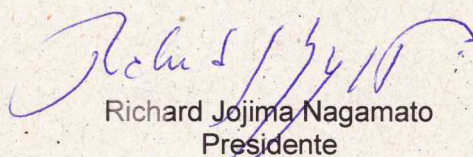 Richard Jojima Nagamato
Presidente